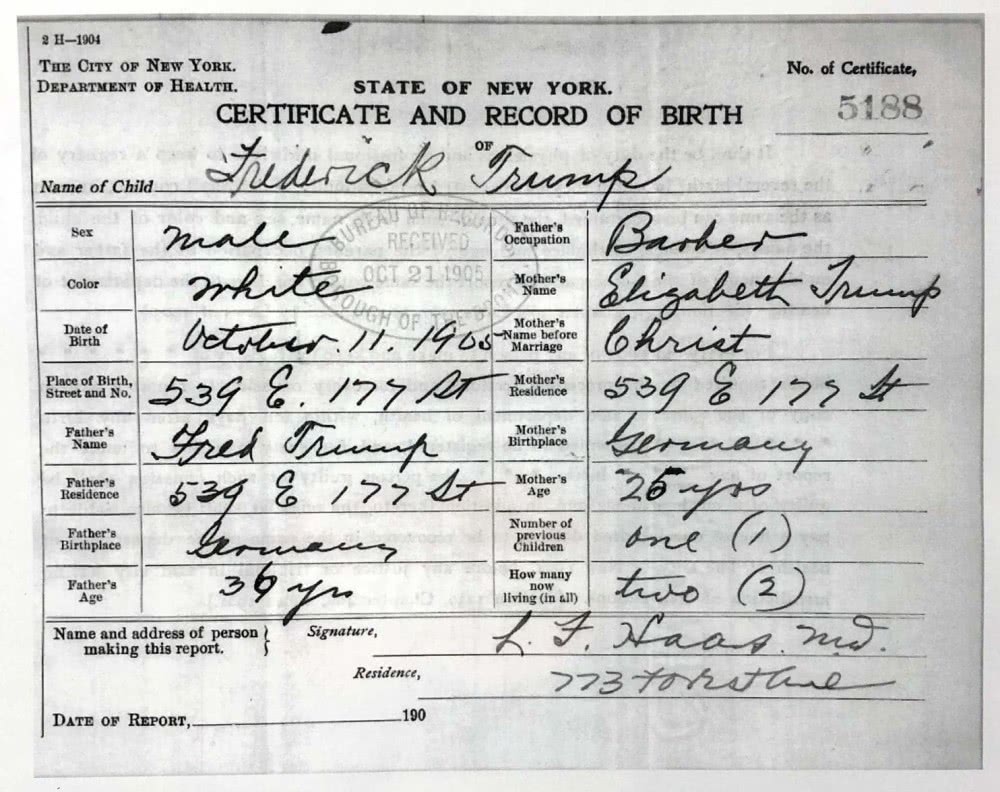 2 H—1904
THE CITY OF NEW YORK.
DEPARTMENT OF HEALTH.
No. of Certificate,
5188
STATE OF NEW YORK.
CERTIFICATE AND RECORD OF BIRTH
OF
Name of Child Frederick Trump
Sex male
Father's Occupation Barber
Color white
Mother's Name Elizabeth Trump
Date of Birth October. 11. 1905
Mother's Name before Marriage Christ
Place of Birth, Street and No. 539 E. 177 St
Mother's Residence 539 E 177 St
Father's Name Fred Trump
Mother's Birthplace Germany
Father's Residence 539 E 177 St
Mother's Age 25 yrs
Father's Birthplace Germany
Number of previous Children one (1)
Father's Age 36 yrs
How many now living (in all) two (2)
BUREAU OF RECORDS
RECEIVED
OCT 21 1905
BOROUGH OF THE BRONX
Name and address of person making this report.
Signature, L. F. Haas. Md.
Residence, 773 Forest Ave
DATE OF REPORT, 190